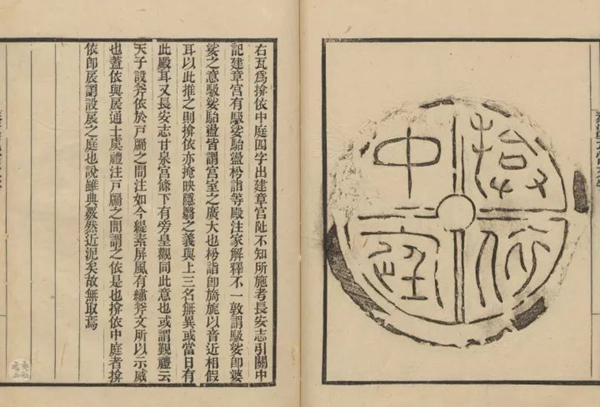 揜依
中庭
右瓦為揜依中庭四字出建章宮阯不知所施者長安志引關中
記建章宮有馺娑駘盪枍詣等殿注家解釋不一敦謂馺娑即婆
娑之意馺娑駘盪皆謂宮室之廣大也枍詣即旖旎以音近相假
耳以此推之則揜依亦掩映隱翳之義與上三名無異或當日有
此殿耳又長安志甘泉宮條下有旁皇觀同此意也或謂覲禮云
天子設斧依於戶牖之間注如今綈素屏風有繡斧文所以示威
也蓋依與扆通士虞禮注戶牖之間謂之依是也揜依中庭者揜
依即扆謂設扆之庭也說雖典覈然近泥矣故無取焉